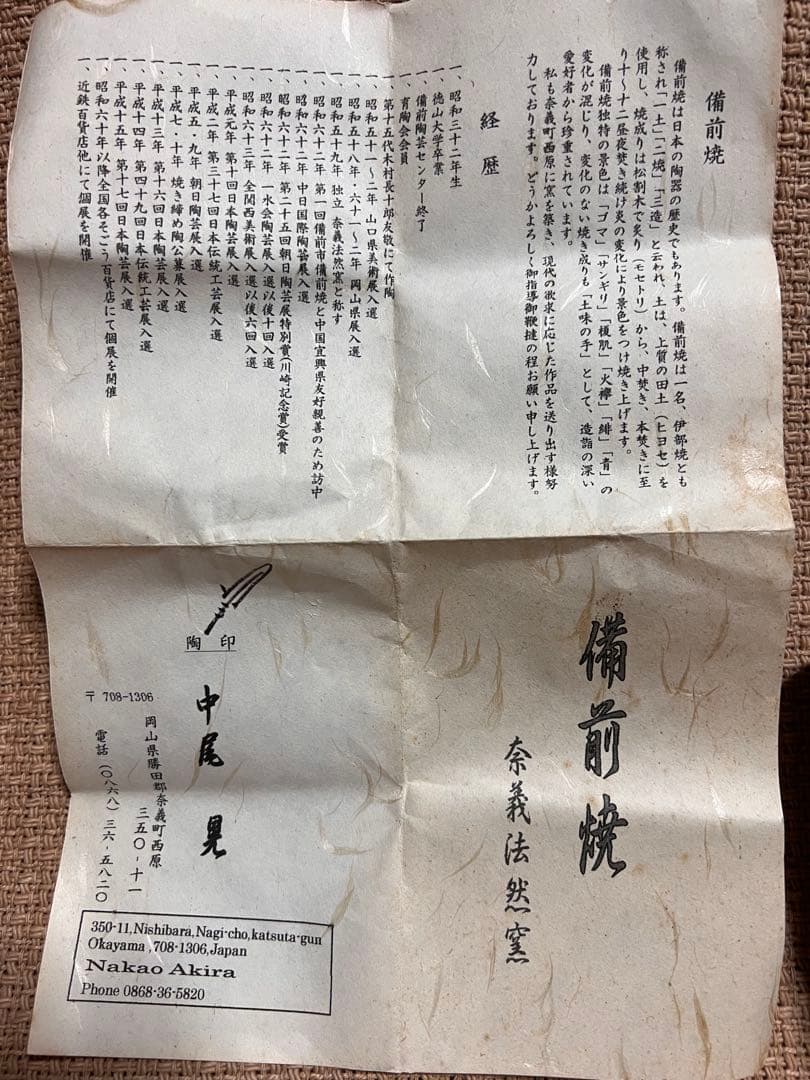 備前焼
備前焼は日本の陶器の歴史でもあります。備前焼は一名、伊部焼とも
称され「一土」「二焼」「三造」と云われ、土は、上質の田土(ヒヨセ)を
使用し、焼成りは松割木で炙り(モセトリ)から、中焚き、本焚きに至
り十~十二昼夜焚き続け炎の変化により景色をつけ焼き上げます。
備前焼独特の景色は「ゴマ」「サンギリ」「榎肌」「火襷」「緋」「青」の
変化が混じり、変化のない焼き成りも「土味の手」として、造詣の深い
愛好者から珍重されています。
私も奈義町西原に窯を築き、現代の欲求に応じた作品を送り出す様努
力しております。どうかよろしく御指導御鞭撻の程お願い申し上げます。
経歴
一、昭和三十二年生
一、徳山大学卒業
備前陶芸センター終了
一、育陶会会員
一、第十五代木村長十郎友敬にて作陶
一、昭和五十一~二年 山口県美術展入選
一、昭和五十八年・六十一~二年 岡山県展入選
一、昭和五十九年 独立 奈義法然窯と称す
一、昭和六十二年 第一回備前市備前焼と中国宜興県友好親善のため訪中
一、昭和六十二年 中日国際陶芸展入選
一、昭和六十二年 第二十五回朝日陶芸展特別賞(川崎記念賞)受賞
一、昭和六十二年 一水会陶芸展入選以後十回入選
一、昭和六十三年 全関西美術展入選以後六回入選
一、平成元年 第十回日本陶芸展入選
一、平成二年 第三十七回日本伝統工芸展入選
一、平成五・九年 朝日陶芸展入選
一、平成七・十年 焼き締め陶公募展入選
一、平成十三年 第十六回日本陶芸展入選
一、平成十四年 第四十九回日本伝統工芸展入選
一、平成十五年 第十七回日本陶芸展入選
一、昭和六十年以降全国各そごう百貨店にて個展を開催
一、近鉄百貨店他にて個展を開催
備前焼
奈義法然窯
陶印
中尾晃
〒708-1306
岡山県勝田郡奈義町西原
三五〇-十一
電話(〇八六八)三六-五八二〇
350-11,Nishibara,Nagi-cho,katsuta-gun
Okayama,708-1306,Japan
Nakao Akira
Phone 0868-36-5820